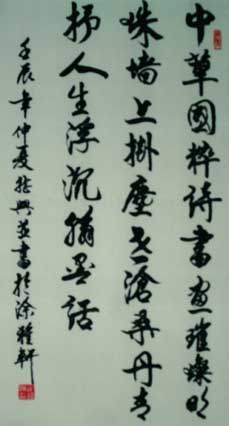 中華國粹詩書畫璀燦明
珠墻上掛塵世滄桑丹青
抒人生浮沉翰墨話
壬辰年仲夏興書於雅軒